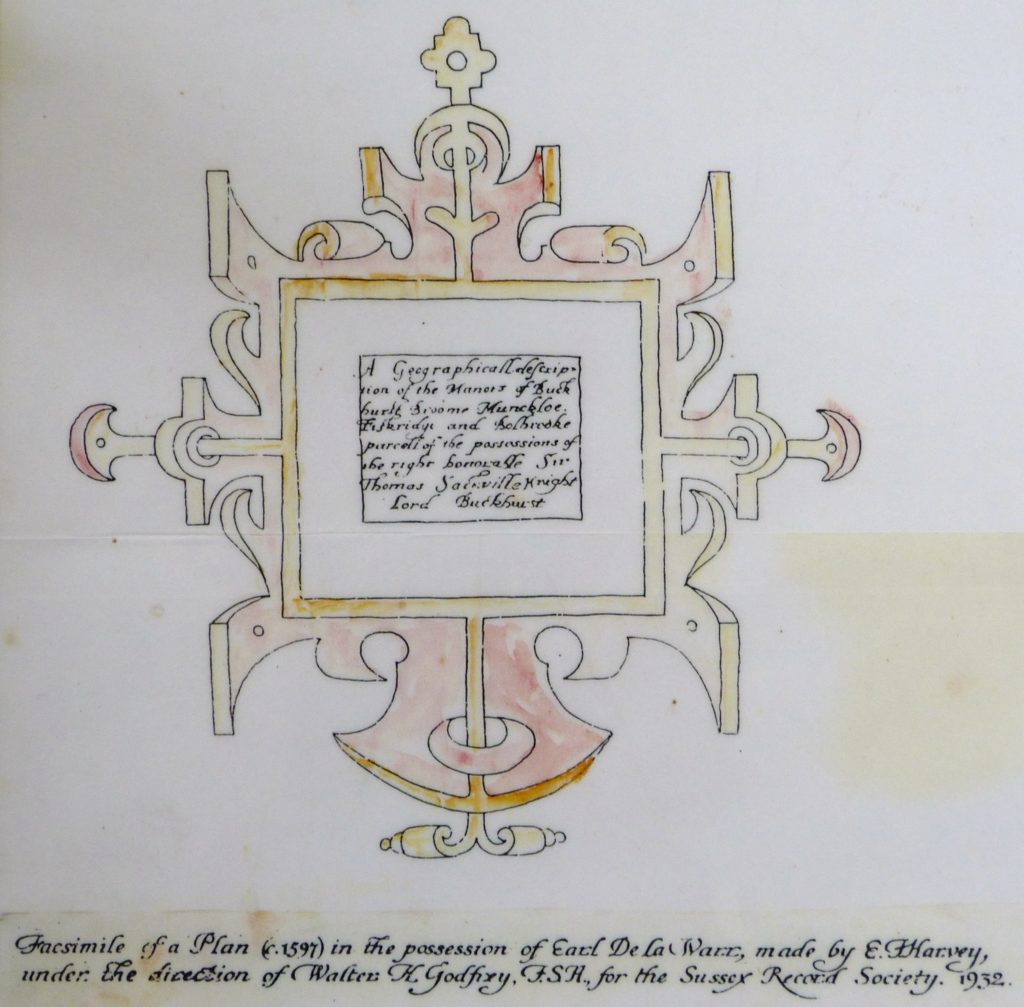 A Geographicall descrip-
tion of the Manors of Buck
hurst, Broome Munckloe,
Fiskridge and Bolbrooke
parcell of the possessions of
the right honorable Sir
Thomas Sackville Knight
Lord Buckhurst
Facsimile of a Plan (c.1597) in the possession of Earl De la Warr, made by E. F. Harvey,
under the direction of Walter H. Godfrey, F.S.A., for the Sussex Record Society. 1932.